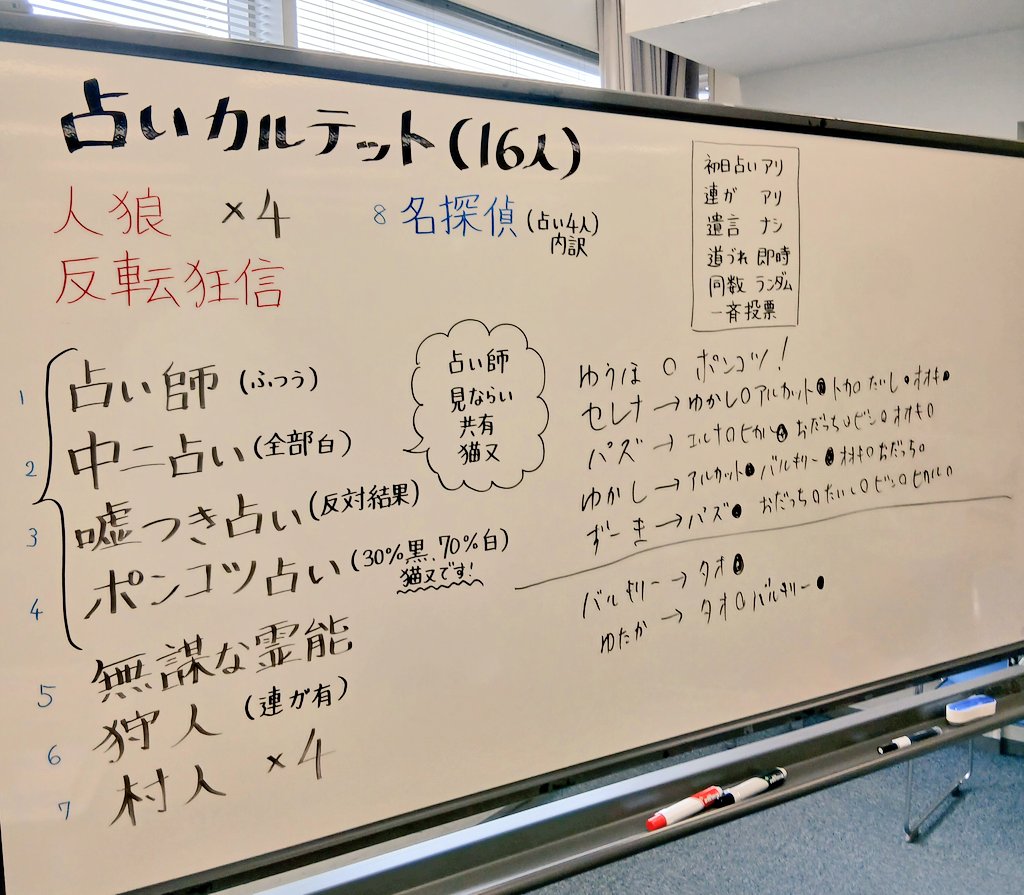 占いカルテット(16人)
人狼 ×4
反転狂信
8 名探偵(占い4人)
内訳
初日占い アリ
連ガ アリ
遺言 ナシ
道づれ 即時
同数 ランダム
一斉投票
1 占い師(ふつう)
2 中二占い(全部白)
3 嘘つき占い(反対結果)
4 ポンコツ占い(30%黒、70%白)
猫又です!
占い師
見ならい
共有
猫又
5 無謀な霊能
6 狩人(連ガ有)
7 村人 ×4
ゆうほ ○ ポンコツ!
セレナ→ゆかし○アルカット●トカ○たいし●オオキ●
パズ→エルナ○ヒカル●おだっち○ビン○オオキ○
ゆかし→アルカット●バルギリー●オオキ○おだっち○
ずーき→パズ●おだっち○たいし○ビン○ヒカル○
バルギリー→タオ●
ゆたか→タオ○バルギリー●